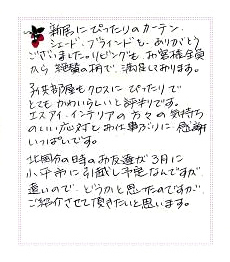 新居にぴったりのカーテン、
シェード、ブラインドを、ありがとう
ございました。リビングも、お客様全員
から 絶賛の柄で、満足しております。
子供部屋もクロスに ぴったりで
とてもかわいらしいと評判です。
エスアイ・インテリアの 方々の 気持ち
のいい応対とお仕事ぶりに 感謝
いっぱいです。
北国分の時のお友達が 3月に
小平市に引越し予定なんですが、
遠いので、どうかと思ったのですが、
ご紹介させて頂きたいと思います。